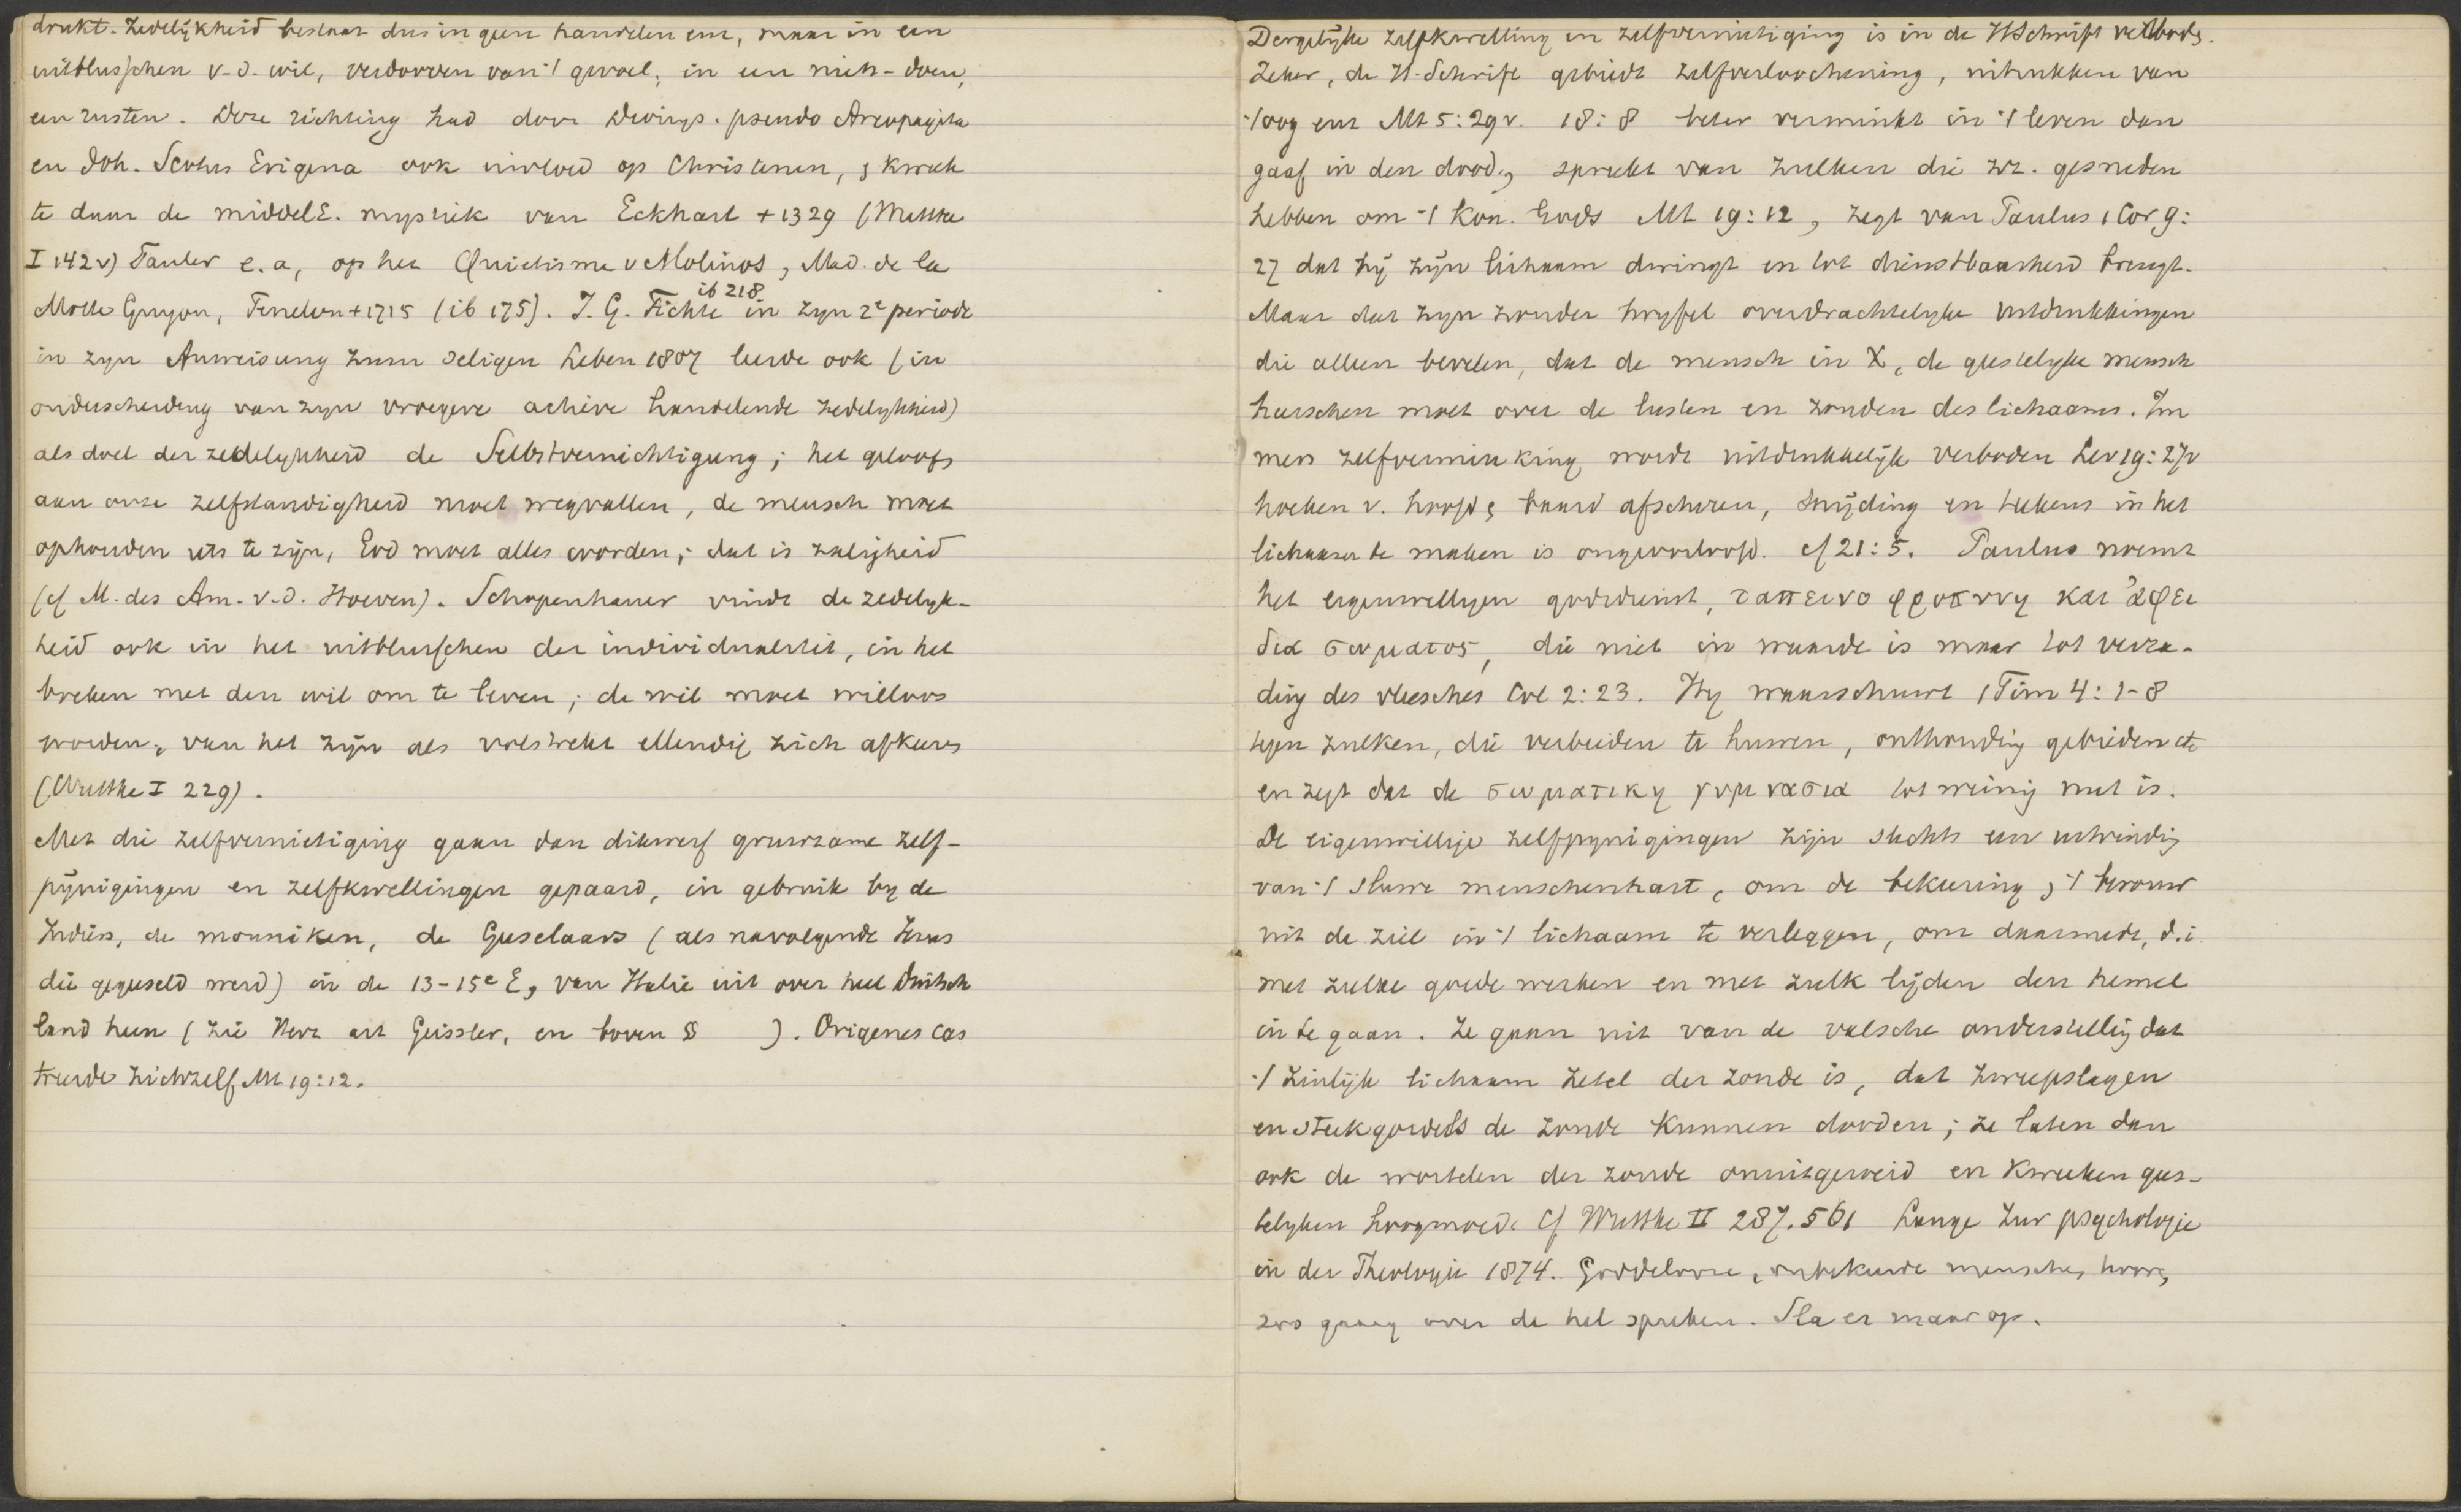 drukt. Zedelijkheid bestaat dus in geen handelen enz, maar in een
uitblusschen v.d. wil, verdooven van 't gevoel, in een niets-doen,
een rusten. Deze richting had door Dionys. pseudo Areopagita
en Joh. Scotus Erigena ook invloed op Christenen, & kweek
te daar de middelE. mystiek van Eckhart + 1329 (Wuttke
I 142v) Tauler e.a, op het Quietisme v Molinos, Mad. de la
Mothe Guyon, Fenelon + 1715 (ib 175). J. G. Fichte ib 218 in zyn 2e periode
in zyn Anweisung zum seligen Leben 1807 leerde ook (in
onderscheiding van zyn vroegere actieve handelende zedelykheid)
als doel der zedelykheid de Selbstvernichtigung; het geloof
aan onze zelfstandigheid moet wegvallen, de mensch moet
ophouden iets te zijn, God moet alles worden; dat is zaligheid
(cf M. des Am. v.d. Hoeven). Schopenhauer vindt de zedelyk-
heid ook in het uitblusschen der individualiteit, in het
breken met den wil om te leven; de wil moet willoos
worden, van het zijn als volstrekt ellendig zich afkeeren
(Wuttke I 229).
Met die zelfvernietiging gaan dan dikwerf gruwzame zelf-
pijnigingen en zelfkwellingen gepaard, in gebruik by de
Indiërs, de monniken, de Geeselaars (als navolgende Jezus
die gegeeseld werd) in de 13-15e E, van Italie uit over heel Duitsch
land heen (zie Herz art Geissler, en boven §§ ). Origenes cas
treerde zichzelf Mt 19:12.
Dergelijke zelfkwelling en zelfvernietiging is in de HSchrift verboden.
Zeker, de H. Schrift gebiedt zelfverloochening, uitrukken van
't oog enz Mt 5:29v. 18:8 beter verminkt in 't leven dan
gaaf in den dood, spreekt van zulken die zz. gesneden
hebben om 't Kon. Gods Mt 19:12, zegt van Paulus 1 Cor 9:
27 dat hij zijn lichaam dwingt en tot dienstbaarheid brengt.
Maar dat zyn zonder twyfel overdrachtelyke uitdrukkingen
die alleen bevelen, dat de mensch in X, de geestelyke mensch
heerschen moet over de lusten en zonden des lichaams. Im
mers zelfverminking wordt uitdrukkelijk verboden Lev 19:27v
hoeken v. hoofd & baard afscheren, snijding en teekens in het
lichaam te maken is ongeoorloofd. cf 21:5. Paulus noemt
het eigenwilligen godsdienst, ταπεινο φροσυνη και ἀφει
δια σωματος, die niet in waarde is maar tot verza-
ding des vleesches Col 2:23. Hy waarschuwt 1 Tim 4:1-8
tegen zulken, die verbieden te huwen, onthouding gebieden etc
en zegt dat de σωματικη γυμνασια tot weinig nut is.
De eigenwillige zelfpynigingen zijn slechts een uitvinding
van 't sluwe menschenhart, om de bekeering & 't berouw
uit de ziel in 't lichaam te verleggen, om daarmede, d.i.
met zulke goede werken en met zulk lijden den hemel
in te gaan. Ze gaan uit van de valsche onderstelling dat
't zinlijk lichaam zetel der zonde is, dat zweepslagen
en steekgordels de zonde kunnen dooden; ze laten dan
ook de wortelen der zonde onuitgeroeid en kweeken gees-
telyken hoogmoed. Cf Wuttke II 287. 561 Lange Zur psychologie
in der Theologie 1874. Goddelooze, onbekeerde menschen hooren
zoo graag over de hel spreken. Sla er maar op.